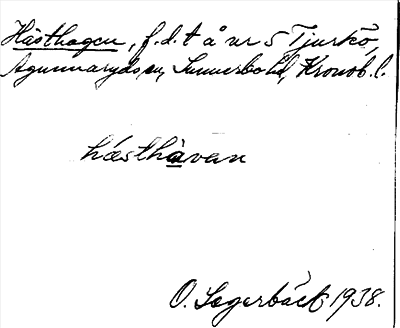 Hästhagen, f.d.t å nr 5 Tjurkö,
Agunnaryds sn, Sunnerbo hd, Kronob. l.
hästhàvan
O. Segerbäck 1938.